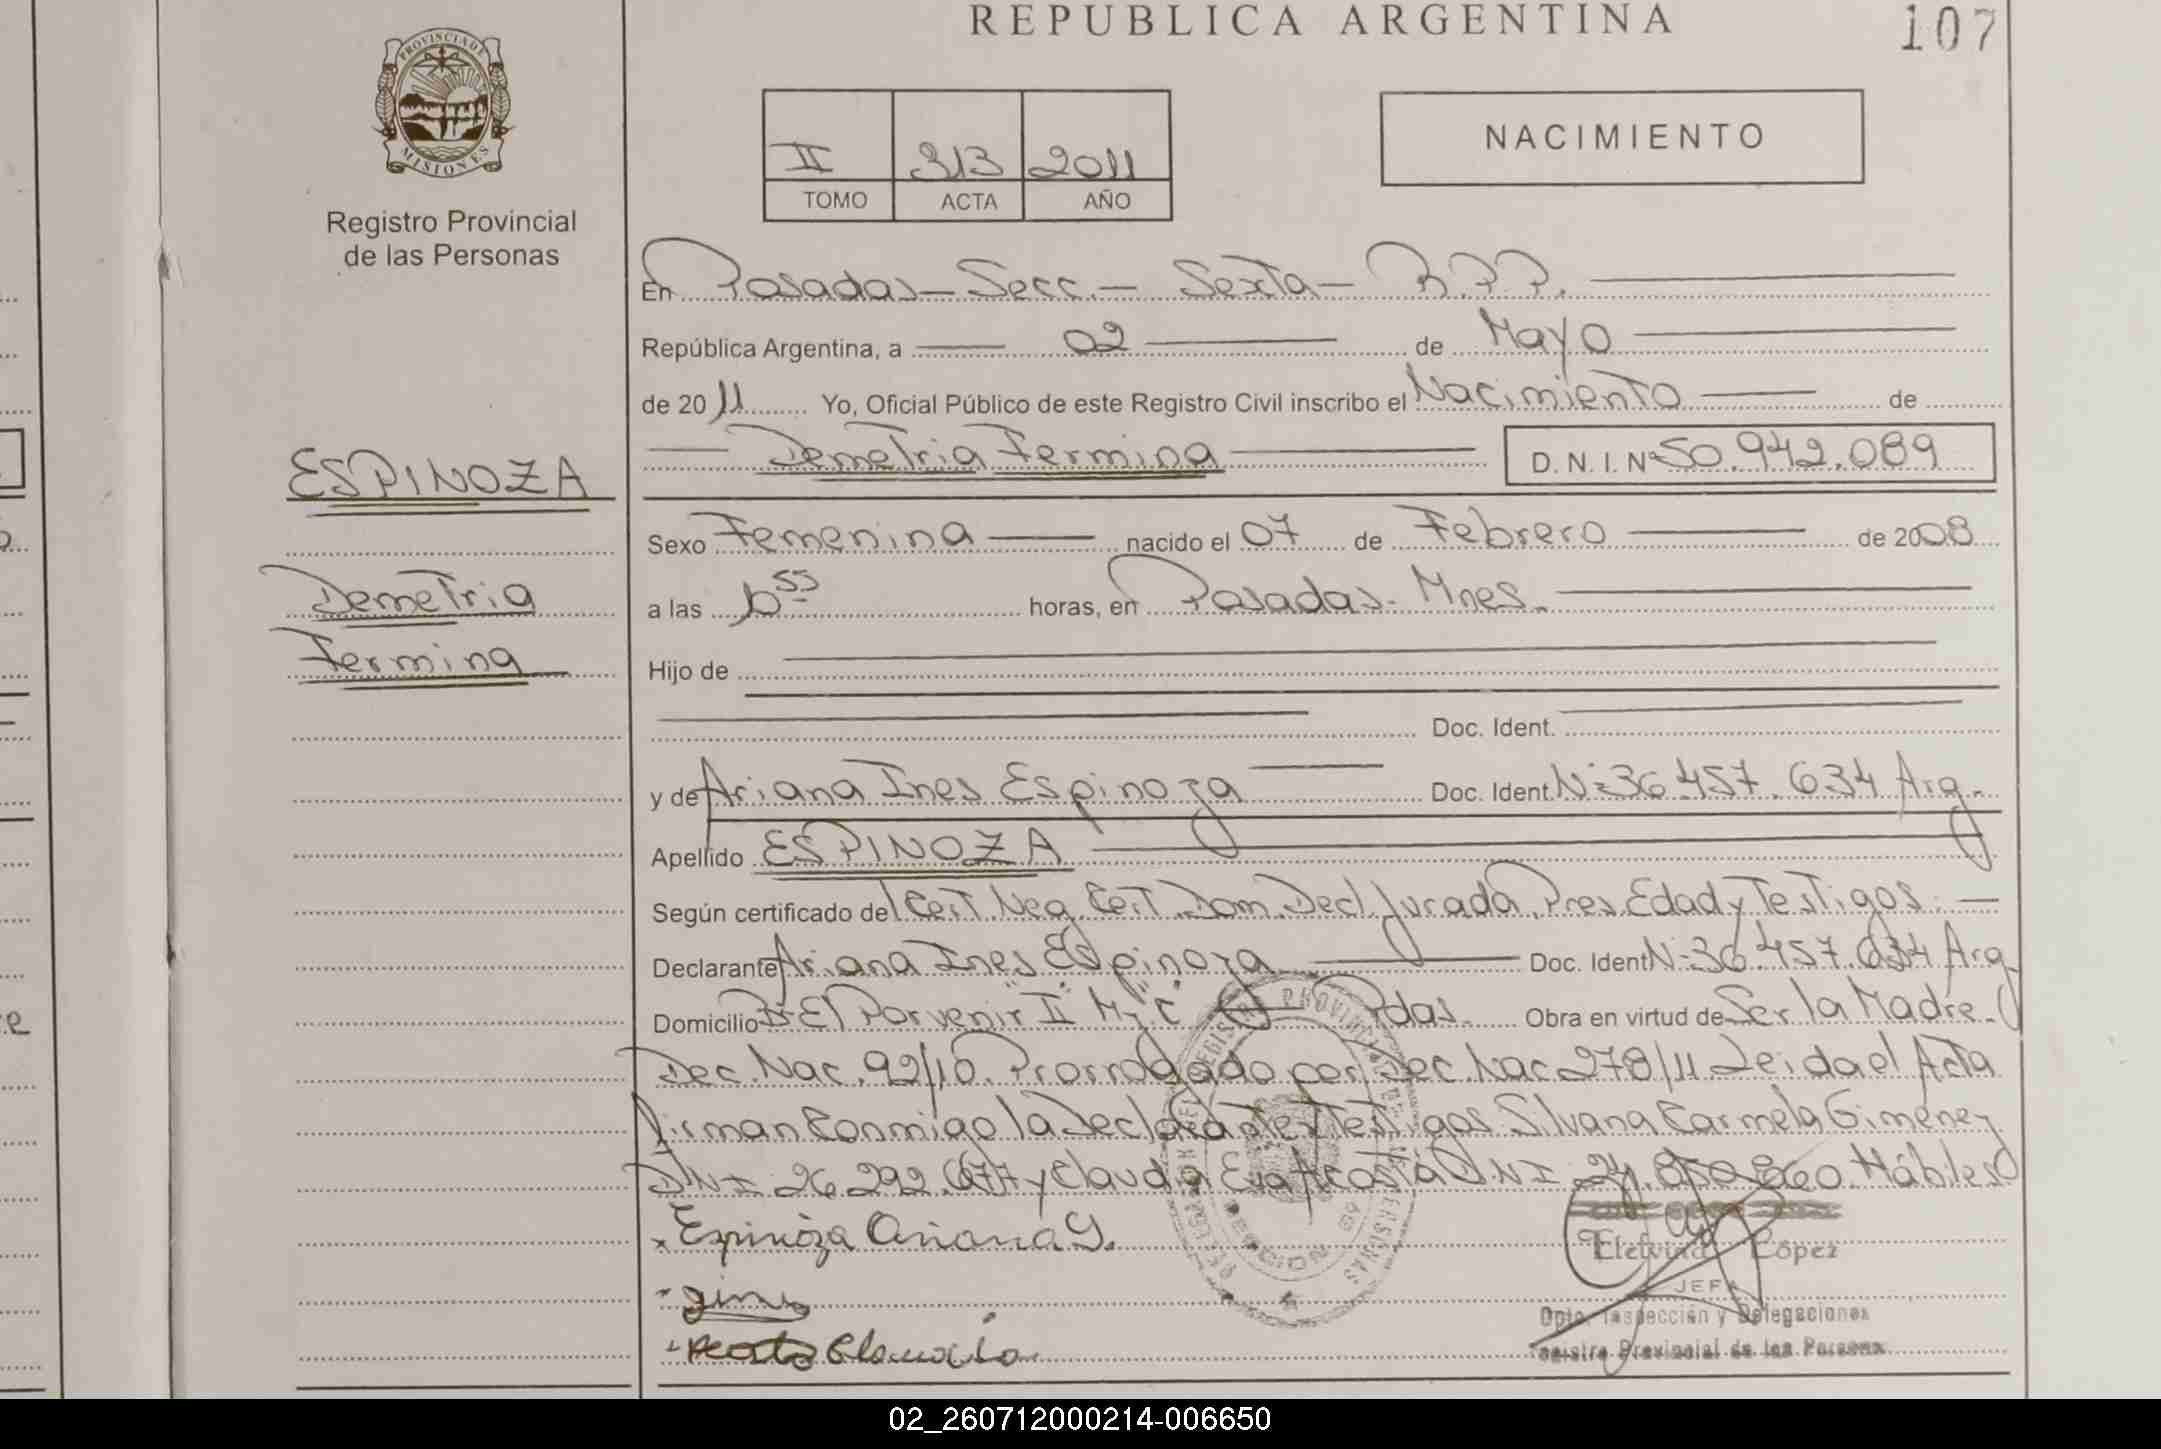 REPUBLICA ARGENTINA
107
PROVINCIA DE
MISIONES
Registro Provincial
de las Personas
II 313 2011
TOMO ACTA AÑO
NACIMIENTO
En Posadas - Secc. - Sexta - R.P.P.
República Argentina, a 02 de Mayo
de 2011 Yo, Oficial Público de este Registro Civil inscribo el Nacimiento de
Demetria Fermina D.N.I. Nº 50.942.089
ESPINOZA
Demetria
Fermina
Sexo Femenina nacido el 07 de Febrero de 2008
a las horas, en Posadas - Mnes.
Hijo de
Doc. Ident.
y de Ariana Ines Espinoza Doc. Ident. Nº 36.457.634 Arg.
Apellido ESPINOZA
Según certificado del Cert. Neg. Cert. Dom. Decl. Jurada, Pres. Edad y Testigos.
Declarante Ariana Ines Espinoza Doc. Ident Nº 36.457.634 Arg.
Domicilio Bº El Porvenir "II" Mz "C" Pdas. Obra en virtud de Ser la Madre.
Dec. Nac. 92/10. Prorrogado por Dec. Nac 278/11 Leida el Acta
Firman Conmigo la Declarante y Testigos Silvana Carmela Gimenez
DNI 26.292.677 y Claudia Eva Acosta D.N.I. Hábiles
Espinoza Ariana I.
Claudia
López
JEFA
Dpto. Inspección y Delegaciones
Registro Provincial de las Personas
02_260712000214-006650